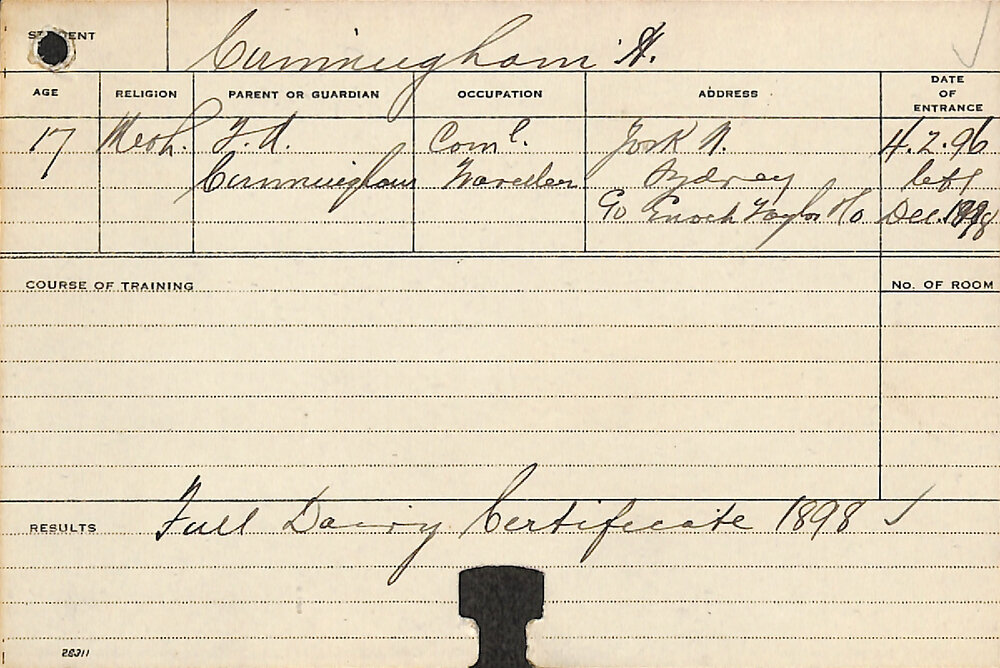 STUDENT Cunningham A.
AGE RELIGION PARENT OR GUARDIAN OCCUPATION ADDRESS DATE OF ENTRANCE
17 Meth. F. A. Coml. York N. 4.2.96
Cunningham Traveller Sydney left
Co Enoch Taylor & Co Dec. 1898
COURSE OF TRAINING No. OF ROOM
RESULTS Full Dairy Certificate 1898 ✓
28311